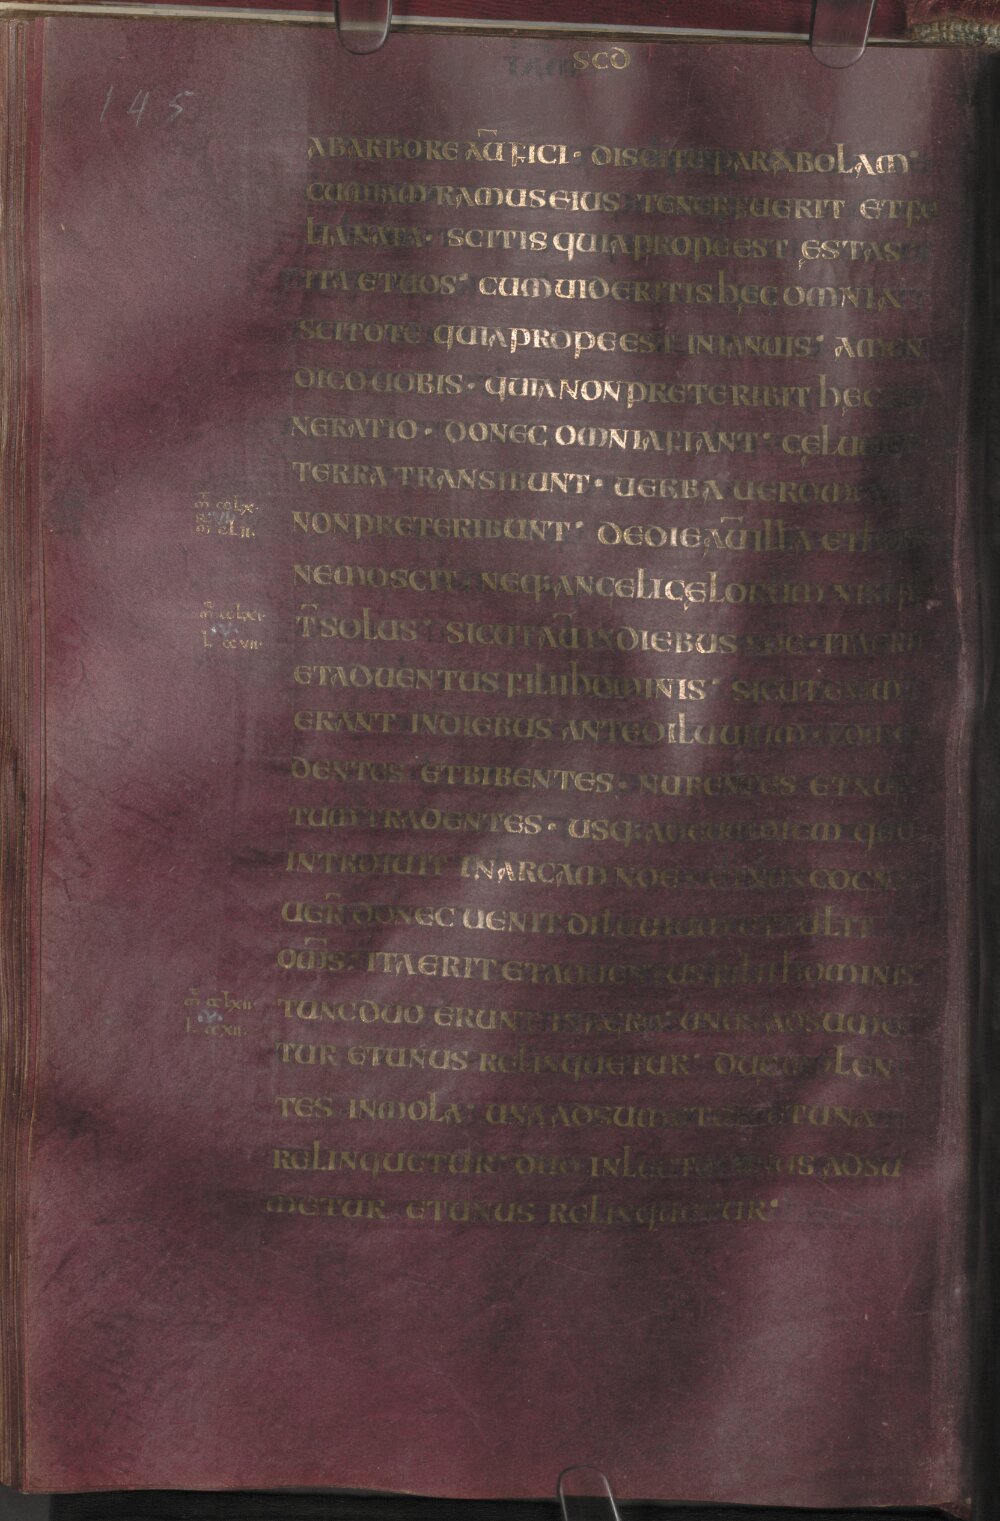 SCD
145
ABARBORE AŪ FICI · DISCITE PARABOLAM
CUM IAM RAMUS EIUS TENER FUERIT ET FO
LIA NATA · SCITIS QUIA PROPE EST ĘSTAS
ITA ET UOS CUM UIDERITIS HĘC OMNIA
SCITOTE QUIA PROPE EST IN IANUIS AMEN
DICO UOBIS · QUIA NON PRETERIBIT HĘC
NERATIO · DONEC OMNIA FIANT CĘLUM ET
TERRA TRANSIBUNT · UERBA UERO MEA
NON PRETERIBUNT DE DIE AŪ ILLA ET
NEMO SCIT · NEQ: ANGELI CĘLORUM NISI
SOLUS SICUT AŪ IN DIEBUS NOE · ITA ERIT
ET ADUENTUS FILII HOMINIS SICUT ENIM
ERANT IN DIEBUS ANTE DILUUIUM ·
DENTES ET BIBENTES · NUBENTES ET NUP
TUM TRADENTES · USQ: AD EUM DIEM QUO
INTROIUIT IN ARCAM NOE · ET NON COGNO
UER̄ DONEC UENIT DILUUIUM ET TULIT
OM̄S · ITA ERIT ET ADUENTUS FILII HOMINIS
TUNC DUO ERUNT IN AGRO UNUS ADSUME
TUR ET UNUS RELINQUETUR DUĘ MOLEN
TES IN MOLA UNA ADSUMETUR ET UNA
RELINQUETUR DUO IN LECTO UNUS ADSU
METUR ET UNUS RELINQUETUR